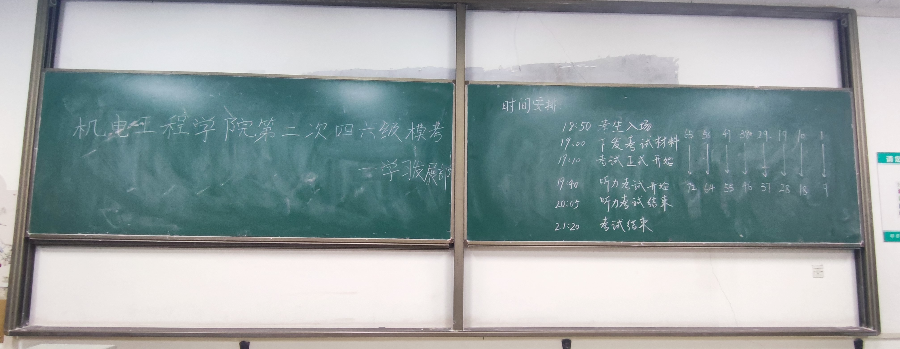 机电工程学院第二次四六级模考
—学习发展部
时间安排
18:50 学生入场
19:00 下发考试材料
19:10 考试正式开始
19:40 听力考试开始
20:05 听力考试结束
21:20 考试结束
19 10 1
72 64 55 37 28 18 9